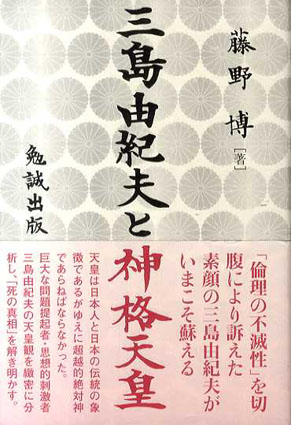 藤野博
[著]
三島由紀夫と
神格天皇
勉誠出版
「倫理の不滅性」を切
腹により訴えた
素顔の三島由紀夫が
いまこそ蘇える
天皇は日本人と日本の伝統の象
徴であるがゆえに超越的絶対神
であらねばならなかった。
巨大な問題提起者・思想的刺激者
三島由紀夫の天皇観を緻密に分
析し、「死の真相」を解き明かす。